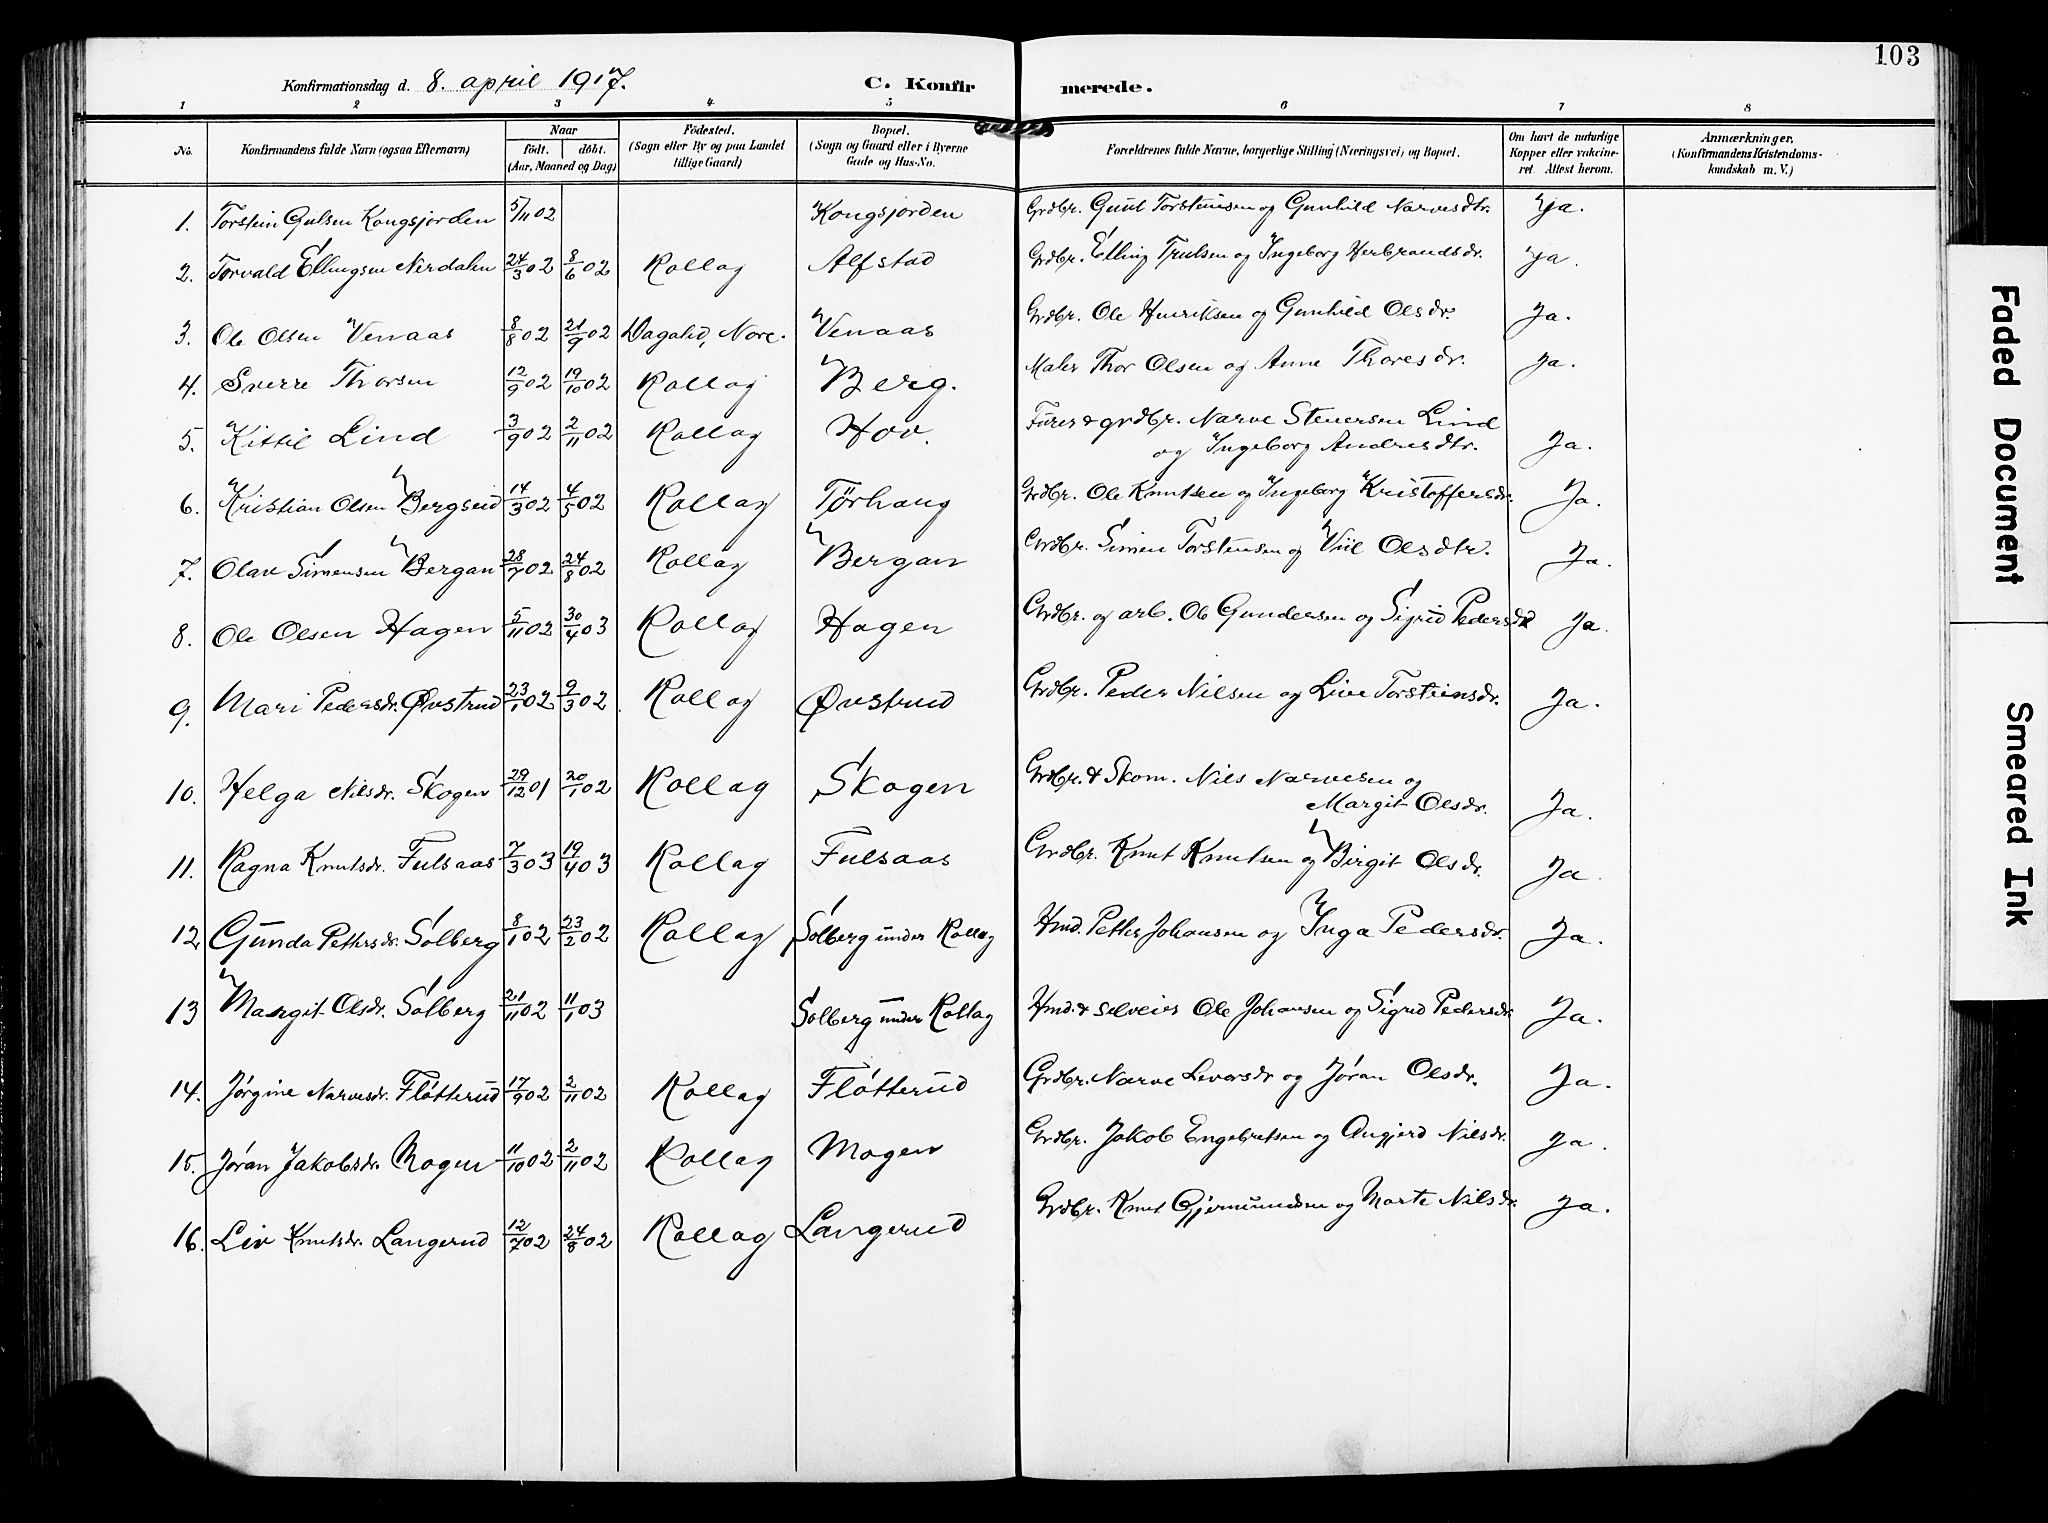 103
Konfirmationsdag d. 8. april 1917. C. Konfirmerede.
1 2 3 4 5 6 7 8
No. Konfirmandens fulde Navn (ogsaa Efternavn) Naar født. døbt. (Aar, Maaned og Dag) Fødested. (Sogn eller By og paa Landet tillige Gaard) Bopæl. (Sogn og Gaard eller i Byerne Gade og Hus-No. Forældrenes fulde Navne, borgerlige Stilling (Næringsvei) og Bopæl. Om havt de naturlige Kopper eller vakcineret. Attest herom. Anmærkninger. (Konfirmandens Kristendomskundskab m. V.)
1. Torstein Gulsen Kongsjorden 5/11 02 Kongsjorden Grdbr. Guul Torsteinsen og Gunhild Narvesdtr. Ja.
2. Torvald Ellingsen Nerdalen 24/3 02 8/6 02 Rollag Alfstad Grdbr. Elling Trulsen og Ingeborg Herbrandsdr. Ja.
3. Ole Olsen Venaas 8/8 02 21/9 02 Dagalid, Nore. Venaas Grdbr. Ole Henriksen og Gunhild Olsdr. Ja.
4. Sverre Thorsen 12/9 02 19/10 02 Rollag Berg. Maler Thor Olsen og Anne Thoresdr. Ja.
5. Kittil Lind 3/9 02 2/11 02 Rollag Hov. Furer & grdbr. Narve Stenersen Lind
og Ingeborg Andresdtr. Ja.
6. Kristian Olsen Bergseid 14/3 02 4/5 02 Rollag Tørhaug Grdbr. Ole Knutsen og Ingeborg Kristoffersdr. Ja.
7. Olav Simensen Bergan 28/7 02 24/8 02 Rollag Bergan Grdbr. Simen Torstensen og Viil Olsdtr. Ja.
8. Ole Olsen Hagen 5/11 02 30/4 03 Rollag Hagen Grdbr. og arb. Ole Gundersen og Sigrid Pedersdr Ja.
9. Mari Pedersdr. Øvstrud 23/1 02 9/3 02 Rollag Øvstrud Grdbr. Peder Nilsen og Live Torsteinsdr. Ja.
10. Helga Nilsdr. Skogen 29/12 01 20/1 02 Rollag Skogen Grdbr. & Skom. Nils Narvesen og
Margit Olsdr. Ja.
11. Ragna Knutsdr. Fulsaas 7/3 03 19/4 03 Rollag Fulsaas Grdbr. Knut Knutsen og Birgit Olsdr. Ja.
12 Gunda Pettersdr. Solberg 8/1 02 23/2 02 Rollag Solberg under Rollag Hmd. Petter Johansen og Inga Pedersdr. Ja.
13 Margit Olsdr. Solberg 21/11 02 11/1 03 Solberg under Rollag Hmd. & selveier Ole Johansen og Sigrid Pedersdr. Ja.
14. Jørgine Narvesdr. Fløtterud 17/9 02 2/11 02 Rollag Fløtterud Grdbr. Narve Leversdr og Jøran Olsdr. Ja.
15. Jøran Jakobsdr. Mogen 11/10 02 2/11 02 Rollag Mogen Grdbr. Jakob Engebretsen og Angjerd Nilsdr. Ja.
16. Liv Knutsdr. Langerud 12/7 02 24/8 02 Rollag Langerud Grdbr. Knut Gjermundsen og Marte Nilsdr. Ja.
Faded Document
Smeared Ink